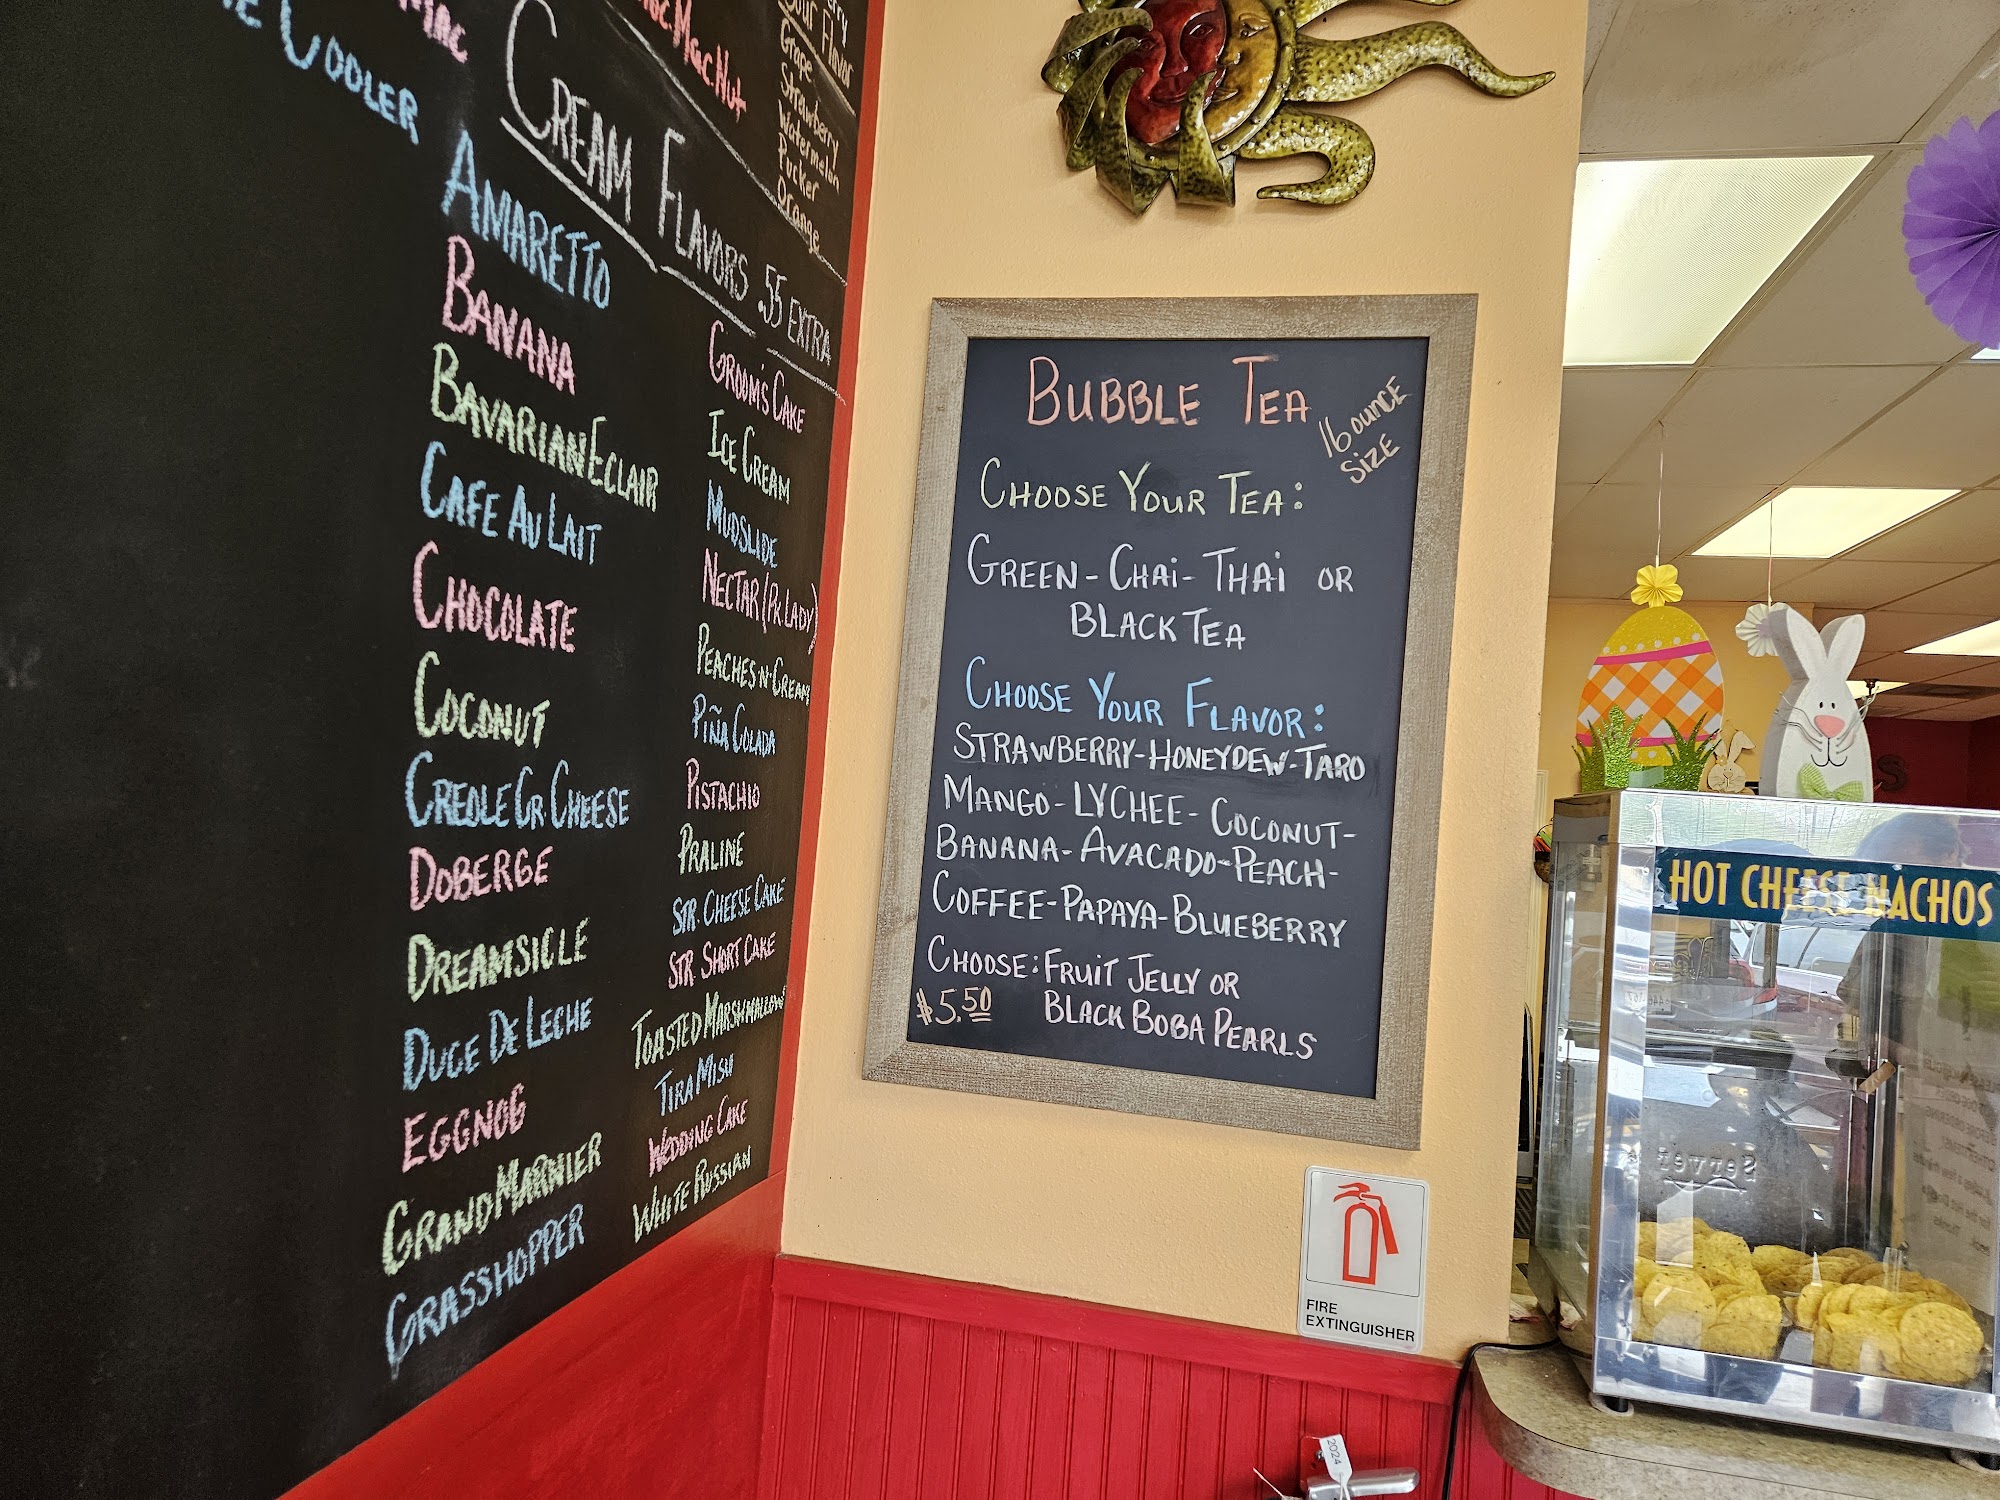 Cooler
Mac.Nut
Sour Flavor
Grape
Strawberry
Watermelon
Pucker
Orange
CREAM FLAVORS .55 EXTRA
AMARETTO
BANANA
BAVARIAN ECLAIR
CAFE AU LAIT
CHOCOLATE
COCONUT
CREOLE CR. CHEESE
DOBERGE
DREAMSICLE
DUCE DE LECHE
EGGNOG
GRAND MARNIER
GRASSHOPPER
GROOM'S CAKE
ICE CREAM
MUDSLIDE
NECTAR (PK. LADY)
PEACHES-N-CREAM
PIÑA COLADA
PISTACHIO
PRALINE
STR. CHEESE CAKE
STR. SHORT CAKE
TOASTED MARSHMALLOW
TIRA MISU
WEDDING CAKE
WHITE RUSSIAN
BUBBLE TEA
16 OUNCE
SIZE
CHOOSE YOUR TEA:
GREEN - CHAi - THAi OR
BLACK TEA
CHOOSE YOUR FLAVOR:
STRAWBERRY-HONEYDEW-TARO
MANGO- LYCHEE- COCONUT-
BANANA- AVACADO-PEACH-
COFFEE-PAPAYA-BLUEBERRY
CHOOSE: FRUIT JELLY OR
BLACK BOBA PEARLS
$5.50
HOT CHEESE NACHOS
Server
FIRE
EXTINGUISHER
2024